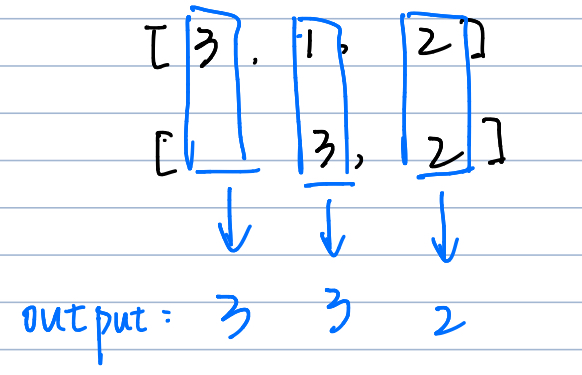 [ 3, 1, 2 ]
[ 3, 2 ]
output: 3 3 2